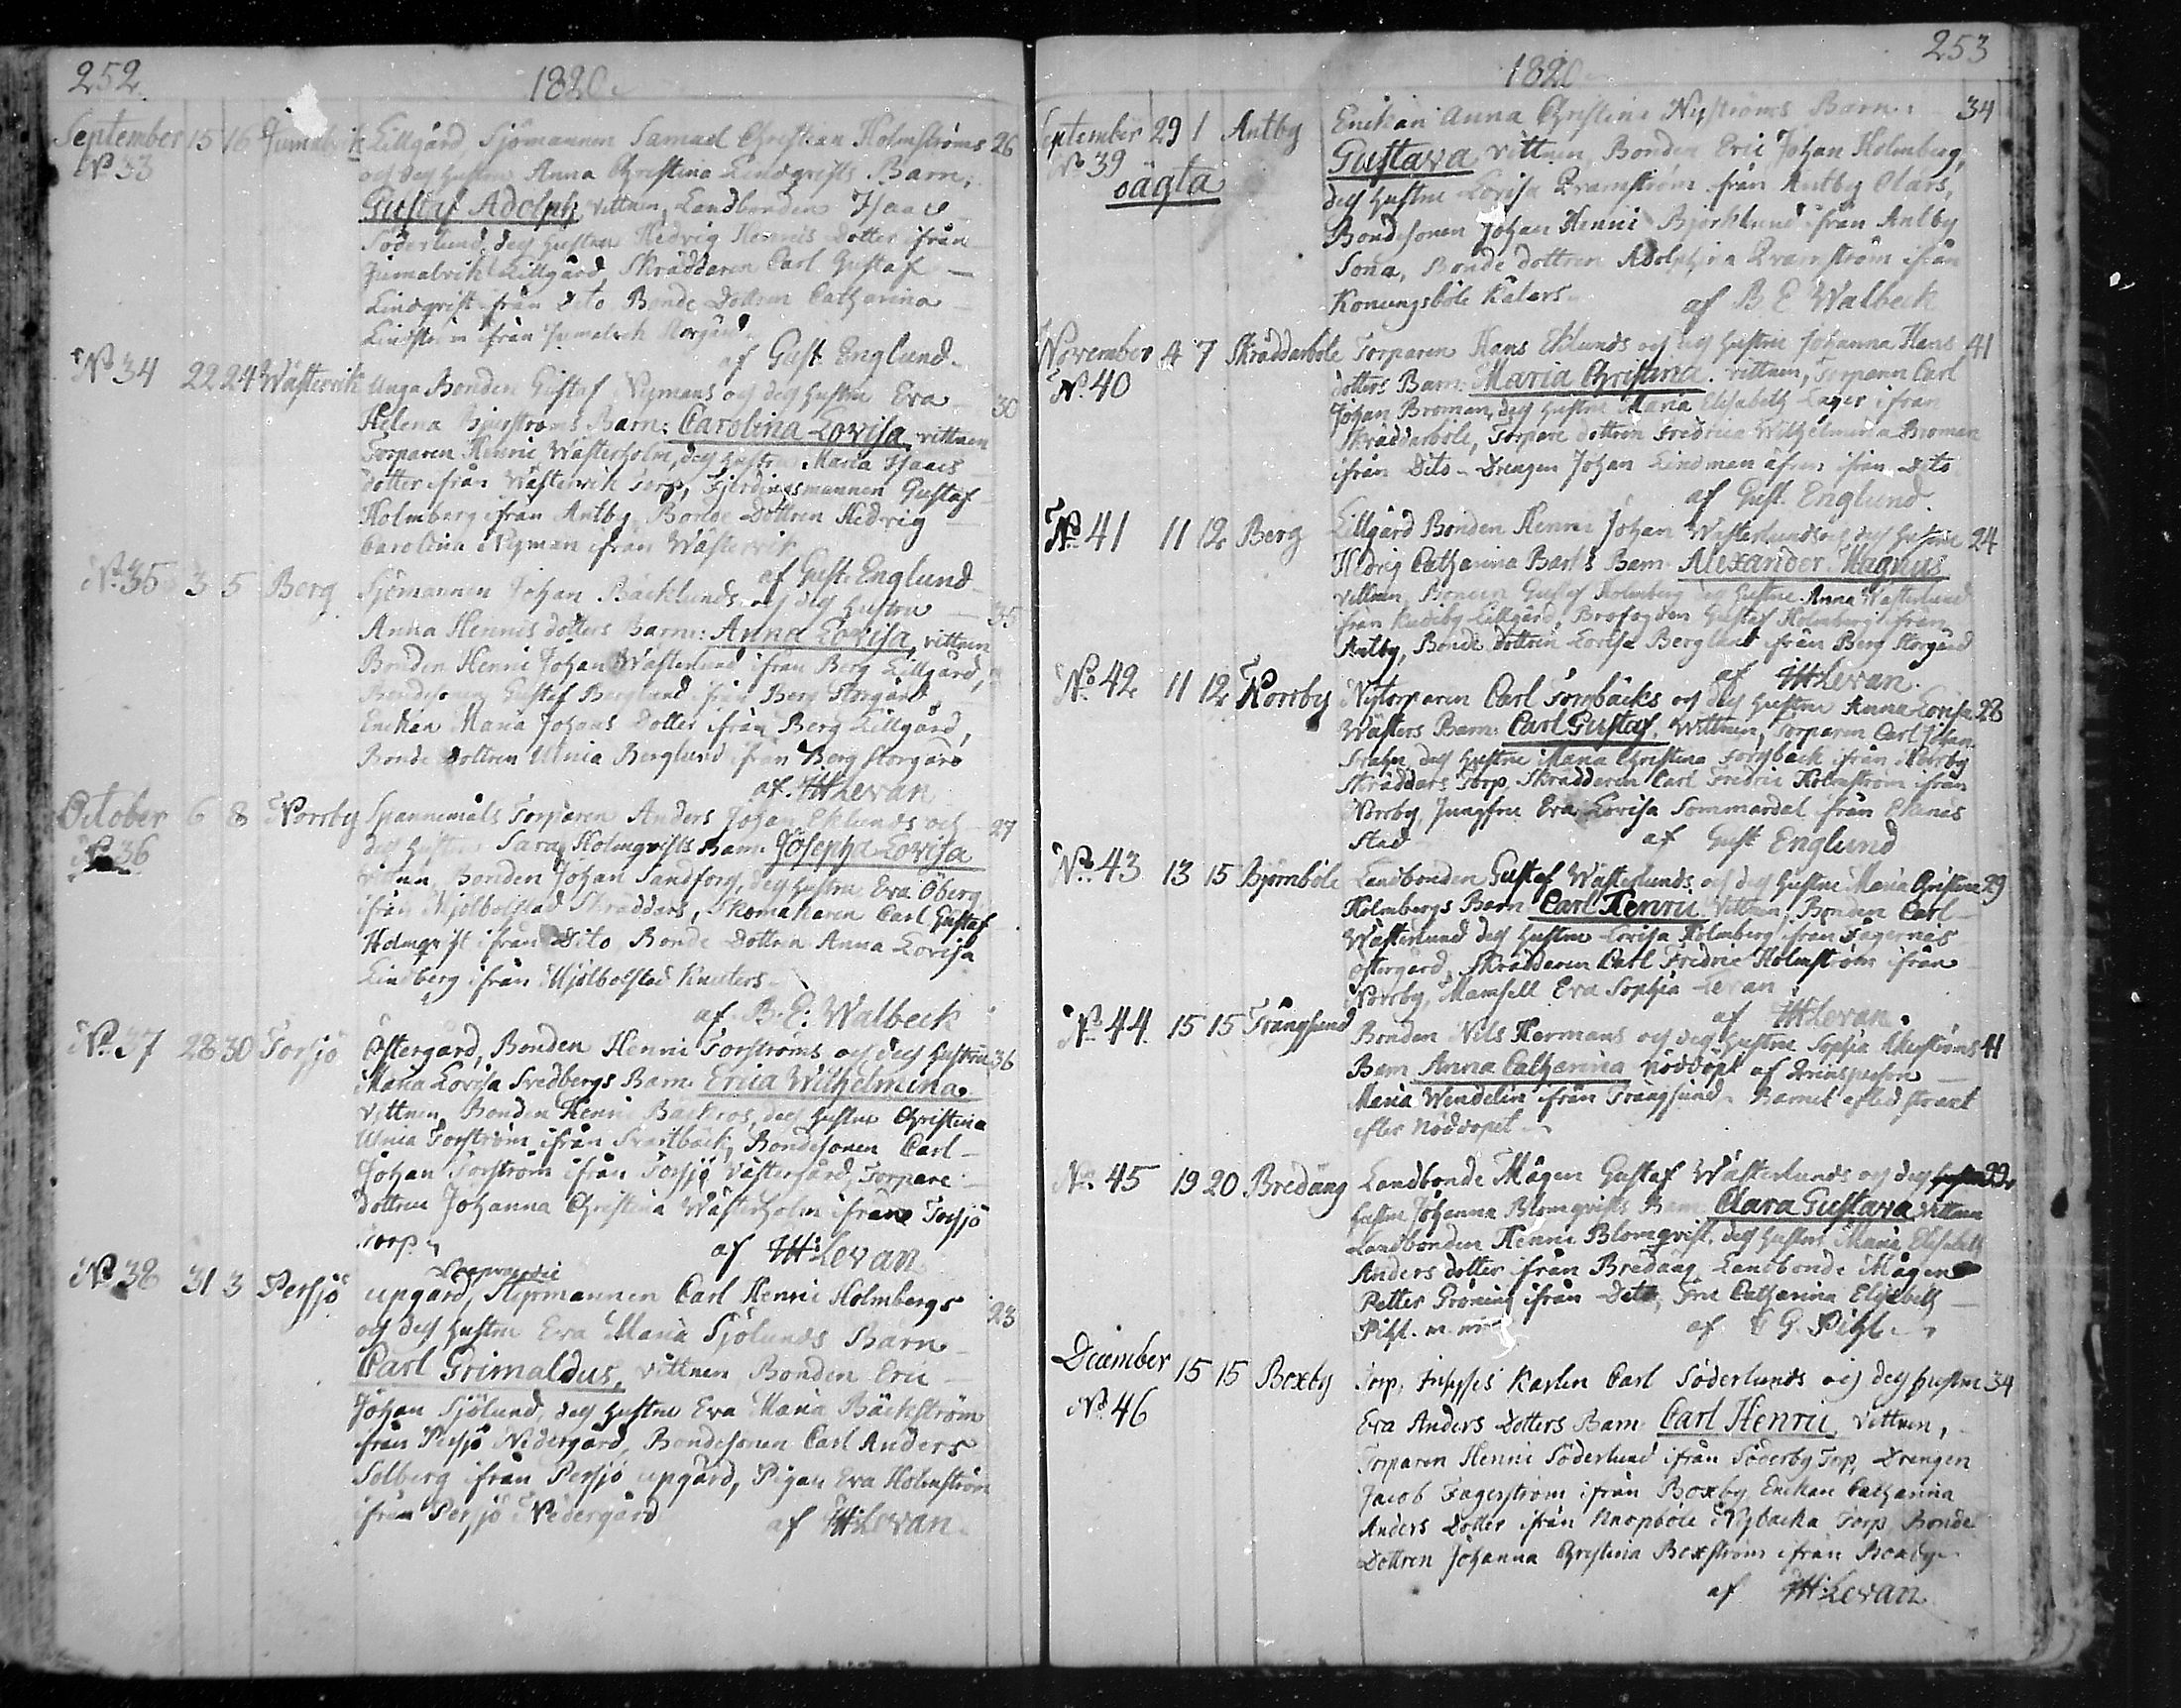 252.
1820.
September 15 16 Jumalvik Lillgård, Sjömannen Samuel Christian Holmströms 26
N° 33 och dess hustru Anna Christina Lindqvists Barn,
Gustaf Adolph, vittnen, Landbonden Isaac
Söderlund, dess hustru Hedvig Henrics dotter ifrån
Jumalvik Lillgård, Skräddaren Carl Gustaf
Lindqvist från dito Bonde Dottren Catharina
Lindström ifrån Jumalvik Storgård.
af Gust. Englund.
N° 34 22 24 Wästervik Unga Bonden Gustaf Nymans och dess hustru Eva 30
Helena Bjurströms Barn: Carolina Lovisa, vittnen
Torparen Henric Wästerholm, dess hustru Maria Isaacs
dotter ifrån Wästervik torp, Fjerdingsmannen Gustaf
Holmberg ifrån Antby, Bonde Dottren Hedvig
Carolina Nyman ifrån Wästervik
af Gust. Englund
N° 35 3 5 Berg Sjömannen Johan Bäcklunds och dess hustru 35
Anna Henrics dotters Barn: Anna Lovisa, vittnen
Bonden Henric Johan Wästerlund ifrån Berg Lillgård,
Bondesonen Gustaf Berglund från Berg Storgård,
Enckan Maria Johans Dotter ifrån Berg Lillgård,
Bonde Dottren Ulrica Berglund ifrån Berg Storgård
af. Levan
October 6 8 Norrby Spannemåls Torparen Anders Johan Eklunds och 27
N° 36 dess hustru Sara Holmqvists Barn: Josepha Lovisa
vittnen Bonden Johan Sandfors, dess hustru Eva Öberg
ifrån Mjölbolstad Skräddars, Skomakaren Carl Gustaf
Holmqvist ifrån Dito, Bonde Dottren Anna Lovisa
Lindberg ifrån Mjölbolstad Knuters.
af. B. E. Walbeck
N° 37 28 30 Torsjö Östergård, Bonden Henric Torströms och dess hustru 36
Maria Lovisa Svedbergs Barn: Erica Wilhelmina.
Vittnen, Bonden Henric Backros, dess hustru Christina
Ulrica Torström ifrån Svartbäck, Bondesonen Carl
Johan Torström ifrån Torsjö Västergård, Torpare
dottren Johanna Christina Wästerholm ifrån Torsjö
torp.
af Levan
N° 38 31 3 Persjö upgård, Styrmannen Carl Henric Holmbergs 23
och dess hustru Eva Maria Sjölunds Barn
Carl Grimaldus, vittnen Bonden Eric
Johan Sjölund, dess hustru Eva Maria Bäckström
från Persjö Nedergård, Bondesonen Carl Anders
Solberg ifrån Persjö upgård, Pigan Eva Holmström
ifrån Persjö Nedergård
af Levan.
253
1820
September 29 1 Antby Enckan Anna Christina Nyströms Barn: 34
N° 39 oägta Gustava vittnen Bonden Eric Johan Holmberg,
dess hustru Lovisa Qvarnström från Antby Olars,
Bondesonen Johan Henric Björklund från Antby
Bonde dottren Adolphina Qvarnström ifrån
Konungsböle Kalars.
af B. E. Walbeck
November 4 7 Skräddarböle Torparen Hans Eklunds och dess hustru Johanna Hans 41
N° 40 dotters Barn: Maria Christina. vittnen, Torparen Carl
Johan Broman, dess hustru Maria Elisabeth Lager ifrån
Skräddarböle, Torpare dottren Fredrica Wilhelmina Broman
ifrån Dito. Drengen Johan Lindman äfven ifrån Dito
af Gust. Englund.
N° 41 11 12 Berg Lillgård Bonden Henric Johan Wästerlunds och dess hustru 24
Hedvig Catharina Barn: Alexander Magnus
vittnen, Bonden Gustaf Holmberg dess hustru Anna Wästerlund
från Rudeby Lillgård, Brofogden Gustaf Holmberg ifrån
Antby, Bonde Dottren Lovisa Berglund ifrån Berg Storgård
af Levan.
N° 42 11 12 Norrby Nytorparen Carl Fornbäcks och dess hustru Anna Lovisa 28
Wästers Barn: Carl Gustaf. Wittnen, Torparen Carl Johan
dess hustru Maria Christina ifrån Norrby
Skräddars Torp, Skräddaren Carl Fredric Holmström ifrån
Norrby, Jungfru Eva Lovisa Sommardal ifrån Ekenäs
Stad
af Gust Englund
N° 43 13 15 Björnböle Landbonden Gustaf Wästerlunds och dess hustru Maria Christina 29
Holmbergs Barn Carl Henric Vittnen, Bonden Carl
Wästerlund dess hustru Lovisa Holmberg ifrån Fagernäs
östergård, Skräddaren Carl Fredric Holmström ifrån
Norrby, Mamsell Eva Sophia Levan
af Levan.
N° 44 15 15 Trångsund Bonden Nils Hermans och dess hustru Sophia 41
Barn Anna Catharina nöddöpt af
Maria Wendelin ifrån Trångsund. Barnet afled straxt
efter nöddopet.
N° 45 19 20 Bredäng Landbonde Mågen Gustaf Wästerlunds och dess
hustru Johanna Blomqvists Barn Clara Gustava vittnen
Landbonden Henric Blomqvist, dess hustru Maria Elisabeth
Anders dotter ifrån Bredäng Landbonde Mågen
Petter Gröning ifrån Dito, Fru Catharina Elisabeth
Pihl.
af C G. Pihl.
December 15 15 Boxby Torp, Inhyses Karlen Carl Söderlunds och dess hustru 34
N° 46 Eva Anders Dotters Barn Carl Henric, vittnen,
Torparen Henric Söderlund ifrån Söderby Torp, Drengen
Jacob Fagerström ifrån Boxby Enckan Catharina
Anders Dotter ifrån Knapböle Nybacka Torp Bonde
Dottren Johanna Christina Boxström ifrån Boxby
af Levan